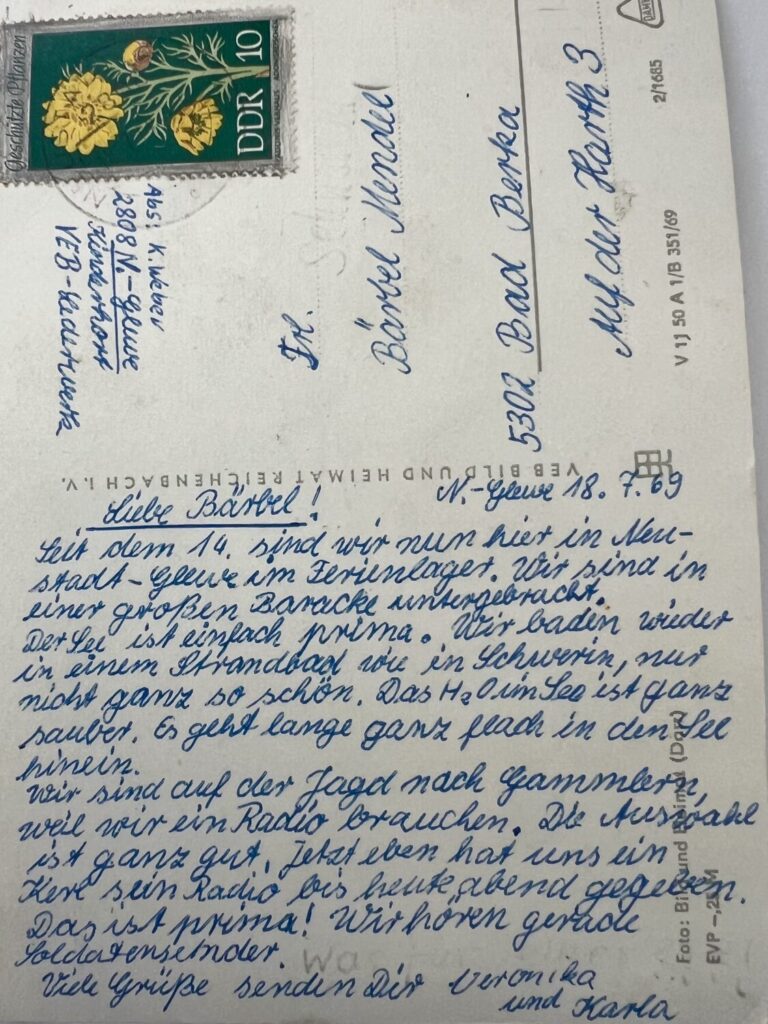 Geschützte Pflanzen
DDR 10
Abs: K. Weber
2808 N.-Glewe
Kinderhort
VEB-Lederwerke
Frl.
Bärbel Mendel
5302 Bad Berka
Auf der Harth 3
V 11 50 A 1/B 351/69
2/1685
VEB BILD UND HEIMAT REICHENBACH I.V.
N.-Glewe 18.7.69
Liebe Bärbel!
Seit dem 14. sind wir nun hier in Neu-
stadt-Glewe im Ferienlager. Wir sind in
einer großen Baracke untergebracht.
Der See ist einfach prima. Wir baden wieder
in einem Strandbad wie in Schwerin, nur
nicht ganz so schön. Das H₂O im See ist ganz
sauber. Es geht lange ganz flach in den See
hinein.
Wir sind auf der Jagd nach Gammlern,
weil wir ein Radio brauchen. Die Auswahl
ist ganz gut. Jetzt eben hat uns ein
Kerl sein Radio bis heute abend gegeben.
Das ist prima! Wir hören gerade
Soldatensender.
Viele Grüße senden Dir Veronika
und Karla
Foto: Bild und Heimat
EVP -,25 M